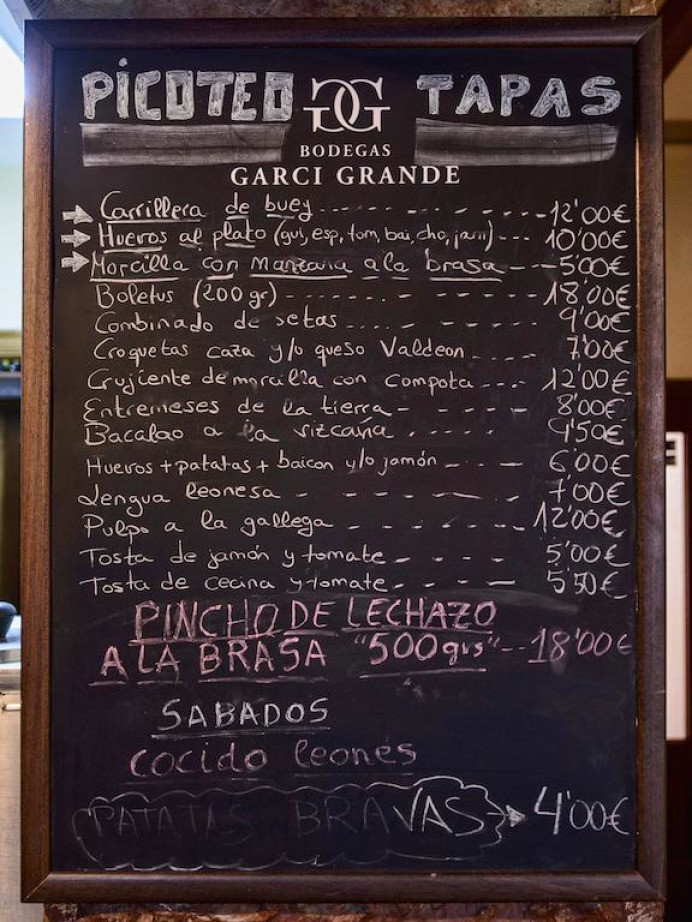 PICOTEO GG TAPAS
BODEGAS
GARCI GRANDE
Carrillera de buey 12'00€
Huevos al plato (gui, esp, tom, bai, cho, jam) 10'00€
Morcilla con manzana a la brasa 5'00€
Boletus (200 gr) 18'00€
Combinado de setas 9'00€
Croquetas caza y/o queso Valdeon 7'00€
Crujiente de morcilla con compota 12'00€
Entremeses de la tierra 8'00€
Bacalao a la vizcaina 9'50€
Huevos + patatas + baicon y/o jamón 6'00€
Lengua leonesa 7'00€
Pulpo a la gallega 12'00€
Tosta de jamón y tomate 5'00€
Tosta de cecina y tomate 5'50€
PINCHO DE LECHAZO
A LA BRASA "500 grs" 18'00€
SABADOS
cocido leonés
PATATAS BRAVAS 4'00€